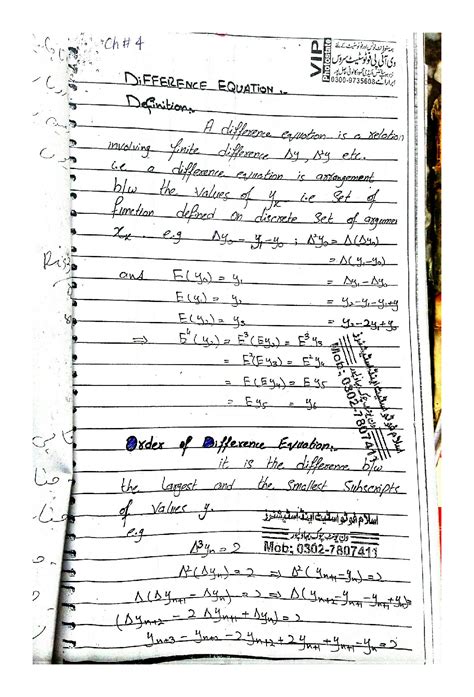 Ch # 4
VIP
Photostate
0300-9735608
DIFFERENCE EQUATION :-
Definition:-
A difference equation is a relation
involving finite difference Δy, Δ²y etc.
i.e a difference equation is arrangement
b/w the values of yₓ i.e Set of
function defined on discrete Set of argumen
xₓ e.g Δy₀ = y₁-y₀ ; Δ²y₀ = Δ(Δy₀)
= Δ(y₁-y₀)
and E(y₀) = y₁ = Δy₁-Δy₀
E(y₁) = y₂ = y₂-y₁-y₁+y
E(y₂) = y₃ = y₂-2y₁+y₀
⇒ E⁴(y₂) = E³(Ey₂) = E³y₃
= E²(Ey₃) = E²y₄
= E(Ey₄) = Ey₅
= Ey₅ = y₆
Mob: 0302-7807411
Order of Difference Equation:-
it is the difference b/w
the largest and the smallest Subscripts
of values y.
اسلام فوٹو سٹیٹ اینڈ سٹیشنرز
e.g
Δ³yₙ = 2
Mob: 0302-7807411
Δ²(Δyₙ) = 2 ⇒ Δ²(yₙ₊₁-yₙ) = 2
Δ(Δyₙ₊₁ - Δyₙ) = 2 ⇒ Δ(yₙ₊₂-yₙ₊₁-yₙ₊₁+yₙ)=
(Δyₙ₊₂ - 2Δyₙ₊₁ + Δyₙ) = 2
yₙ₊₃ - yₙ₊₂ - 2yₙ₊₂ + 2yₙ₊₁ + yₙ₊₁ - yₙ = 2